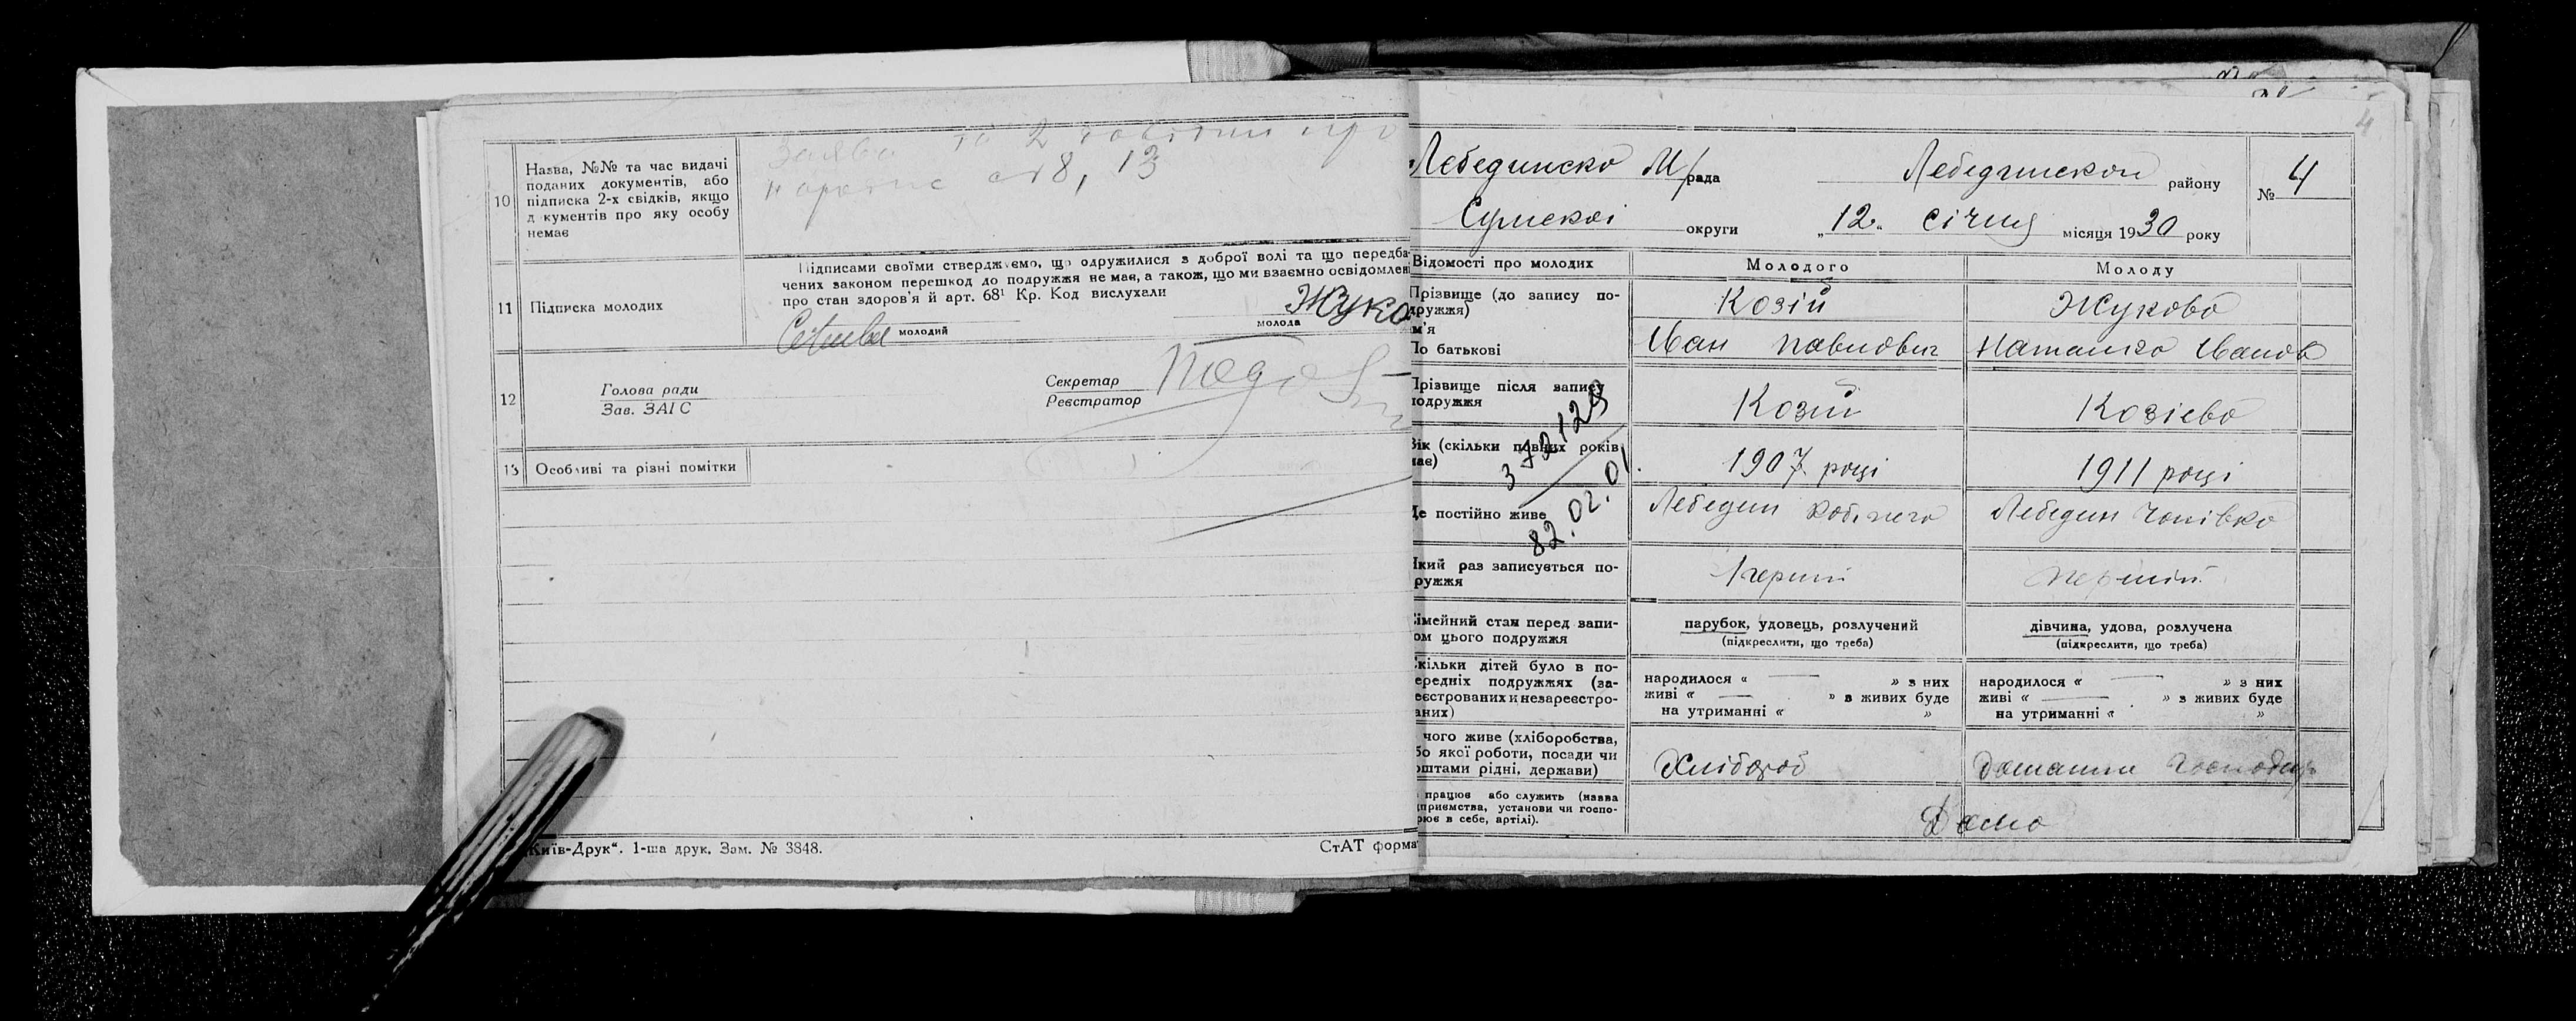 10
Назва, №№ та час видачі
поданих документів, або
підписка 2-х свідків, якщо
д кументів про яку особу
немає
Заява та 2
ст 8, 13
11
Підписка молодих
Підписами своїми стверджуємо, що одружилися з доброї волі та що передба-
чених законом перешкод до подружжя не має, а також, що ми взаємно освідомлен
про стан здоров'я й арт. 68¹ Кр. Код вислухали
молодий
молода
Жуко
12
Голова ради
Зав. ЗАГС
Секретар
Реєстратор
13
Особливі та різні помітки
„Київ-Друк“. 1-ша друк. Зам. № 3848.
СтАТ форма
4
Лебединско М/рада
Лебединскои району
№ 4
Сумскоі округи
„12„ січня місяця 1930 року
Відомості про молодих
Молодого
Молоду
Прізвище (до запису по-
дружжя)
м'я
По батькові
Козій
Жукова
Іван Павлович
Наталка Іванов
Прізвище після запису
подружжя
Козій
Козієва
Вік (скільки повних років
має)
1907 році
1911 році
373129
82.02.01.
Де постійно живе
Лебедин
Лебедин
Який раз записується по-
дружжя
1 перший
перший
імейний стан перед запи-
ом цього подружжя
парубок, удовець, розлучений
(підкреслити, що треба)
дівчина, удова, розлучена
(підкреслити, що треба)
кільки дітей було в по-
ередніх подружжях (за-
еєстрованих и незареєстро-
аних)
народилося « — » з них
живі « — » з живих буде
на утриманні « »
народилося « — » з них
живі « — » з живих буде
на утриманні « »
чого живе (хліборобства,
бо якої роботи, посади чи
оштами рідні, держави)
Хлібороб
Домашня господар
працює або служить (назва
приємства, установи чи госпо-
рює в себе, артілі).
Дома